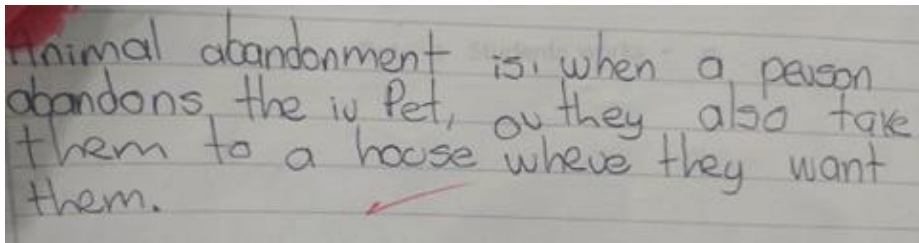 Animal abandonment is when a person
abandons the ir Pet, or they also take
them to a house where they want
them.